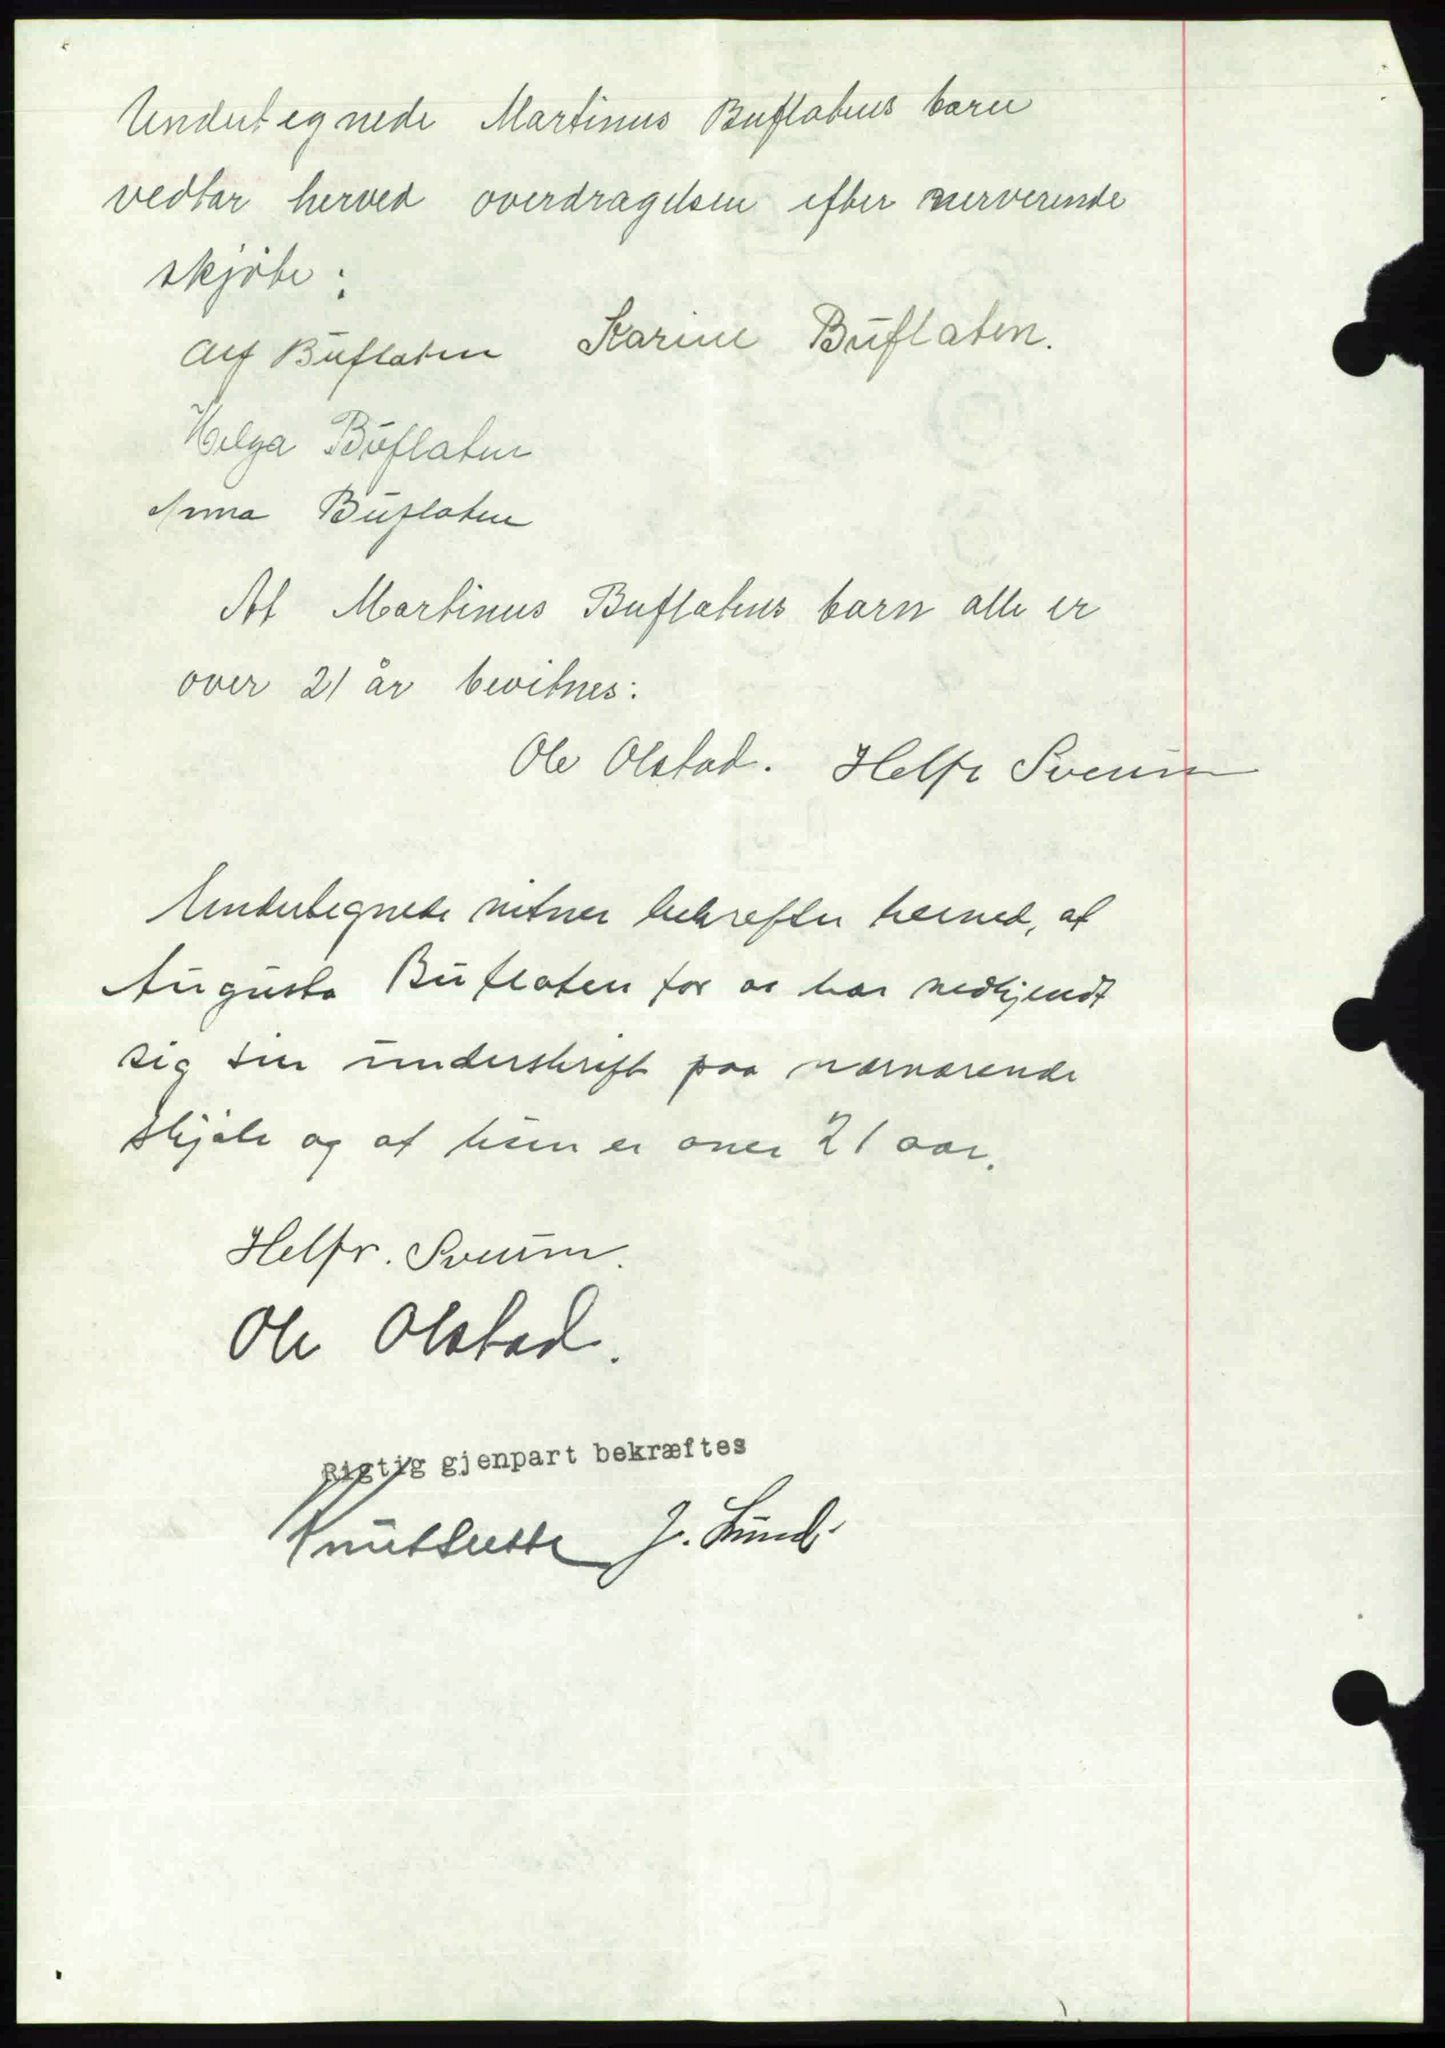 Undertegnede Martinus Buflatens barn
vedtar herved overdragelsen efter nerverende
skjöte:
Alf Buflaten Karine Buflaten.
Helga Buflaten
Anna Buflaten
At Martinus Buflatens barn alle er
over 21 år bevitnes:
Ole Olstad. Helfr Sveum
Undertegnede vitner bekrefter herved, at
Augusta Buflaten for os har vedkjendt
sig sin underskrift paa nærværende
skjöte og at hun er over 21 aar.
Helfr. Sveum.
Ole Olstad.
Rigtig gjenpart bekræftes
J. Lund